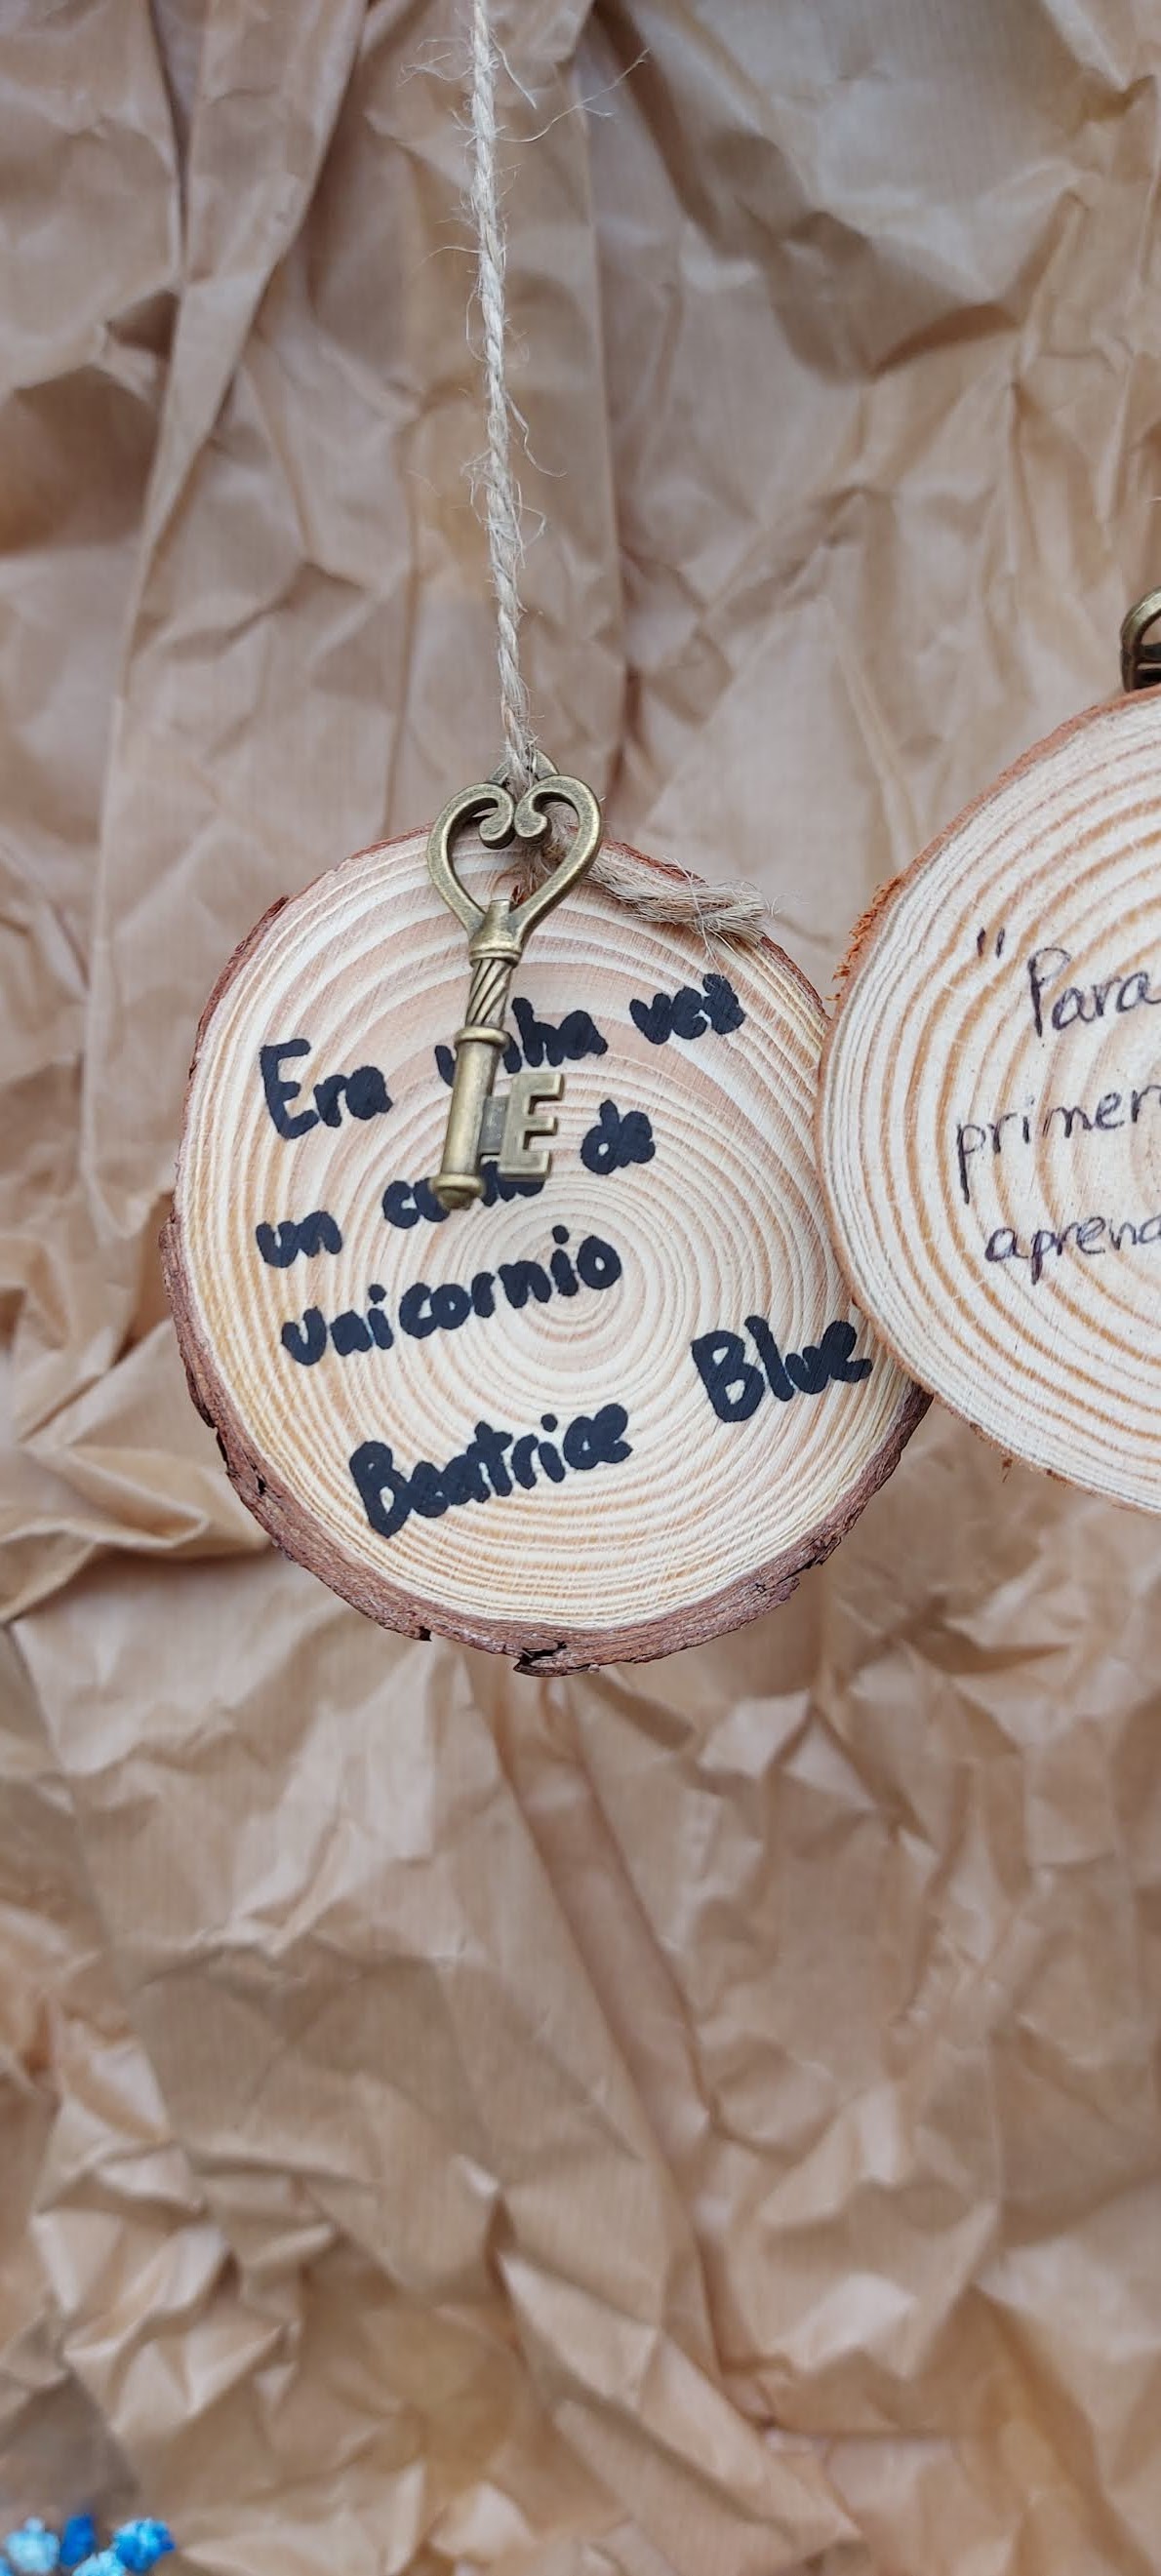 Era unha vez
un de
unicornio
Beatrice Blue
" Para
primer
aprend